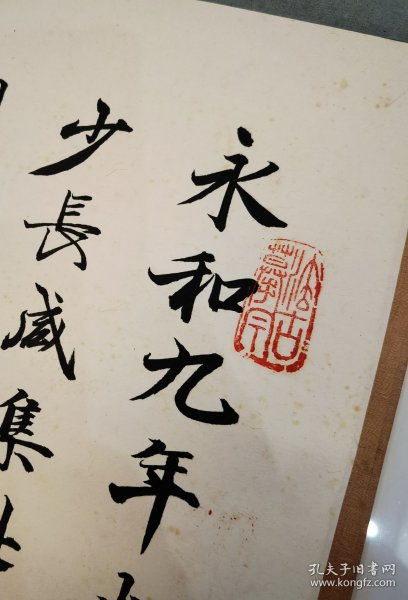 永和九年
少長咸集
孔夫子旧书网
www.kongfz.com